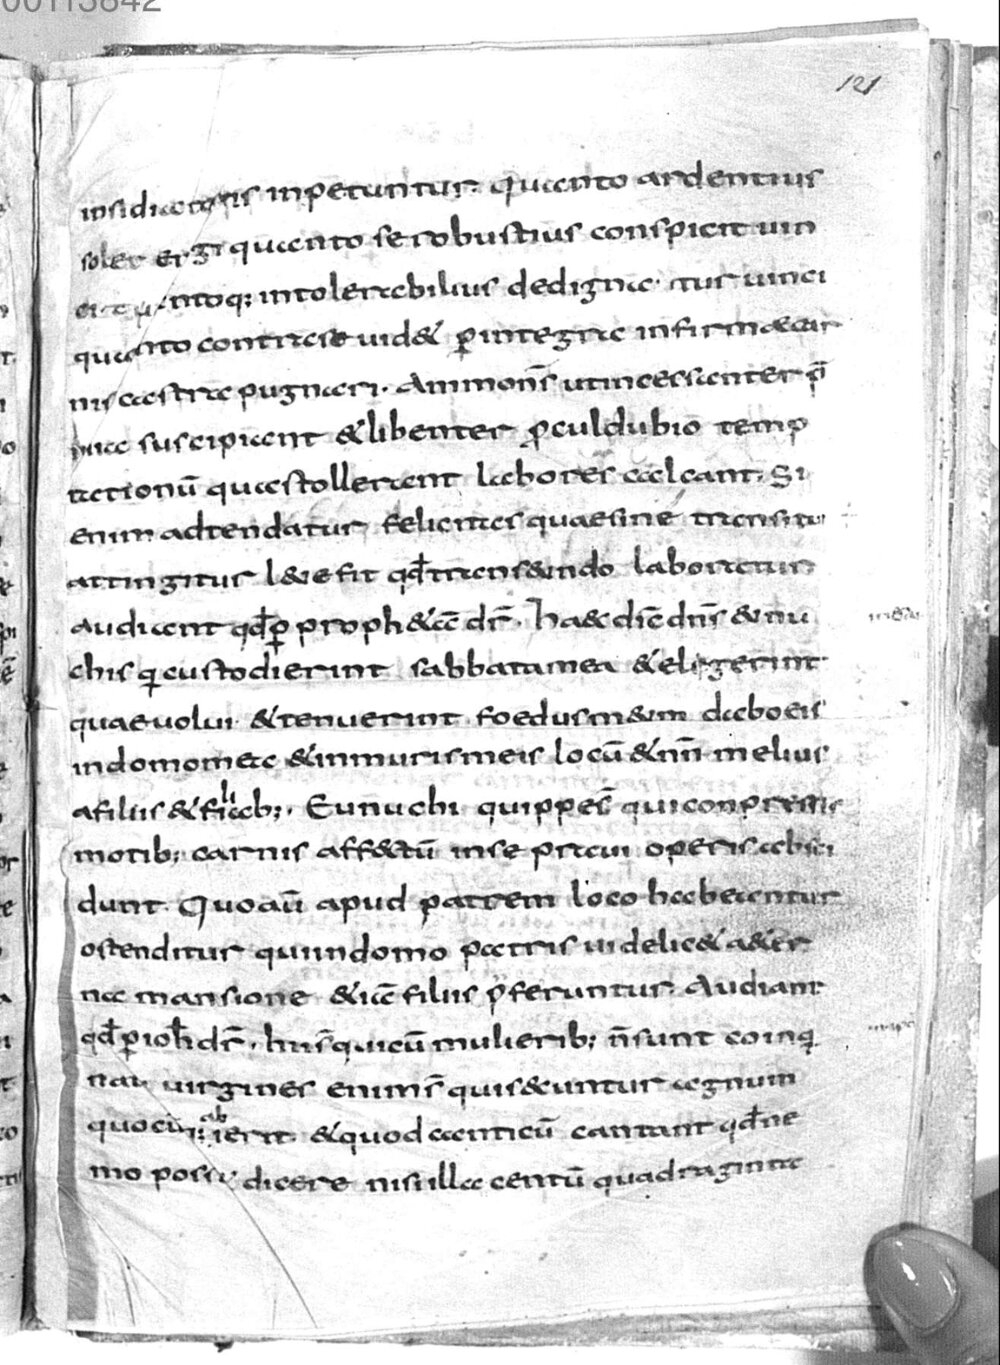 00113842
121
insidiatoris inpetuntur. quanto ardentius
solet ergi quanto se robustius conspicit uin
ci tantoq; intolerabilius dedigna tur uinci
quanto contra se uid& p̱ integra infirmitatis
nis castra pugnari. Ammonñs ut incessanter p̄
mia suscipiant & libenter ꝓculdubio temp
tationū quas tollerant labores calcant. Si
enim adtendatur felicitas quae sine transitu
attingitur l&e fit qđ transeundo laboratur
audiant qđ ꝑ proph&ā dr̄. ha&c dic̄ dn̄s &nu
chis qi custodierint sabbata mea & elegerint
quae uolui & tenuerint foedus m&um dabo eis
in domo mea & in muris meis locū & nn̄ melius
a filiis & filiab;. Eunuchi quippe s̄ qui conpressis
motib; carnis aff&ctū in se praui operis absci
dunt Quo aū apud patrem loco habeantur
ostenditur qui in domo patris uidelic& a&er
na mansione &iā filiis p̄feruntur. Audiant
qđ ꝑ ioh̄ dr̄. hii s̄ qui cū mulierib; n̄ sunt coinq
nati uirgines enim s̄ qui secuntur agnum
quocūq; abierit & quod canticū cantant qđ ne
mo possit dicere nisi illa centū quadraginta